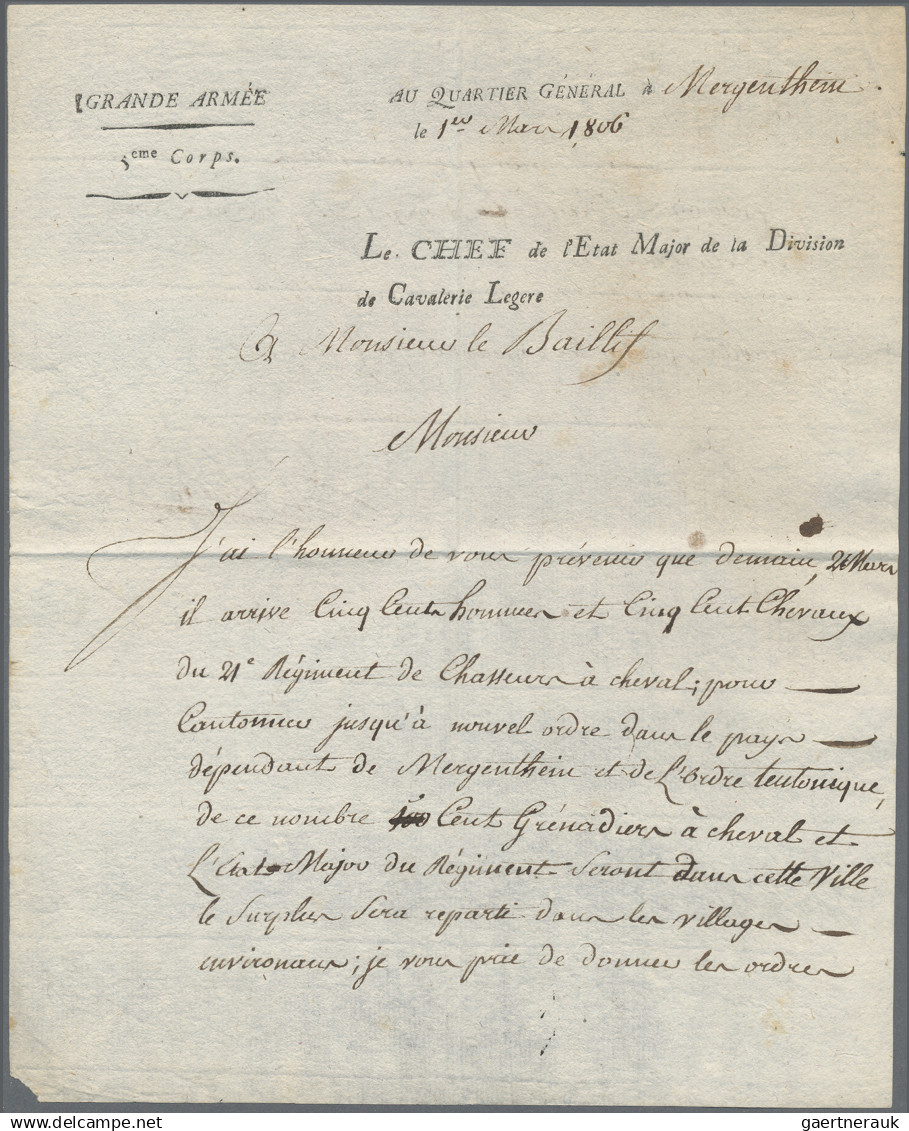 GRANDE ARMÉE
5eme Corps.
AU QUARTIER GÉNÉRAL à Mergentheim
le 1er Mars 1806
Le CHEF de l'Etat Major de la Division
de Cavalerie Legere
A Monsieur le Baillif
Monsieur
J'ai l'honneur de vous prévenir que demain, 2 Mars
il arrive Cinq Cents hommes et Cinq Cent Chevaux
du 21e Régiment de Chasseurs à cheval; pour
Cantonner jusqu'à nouvel ordre dans le pays
dépendant de Mergentheim et de L'Ordre teutonique,
de ce nombre Cent Grénadiers à cheval et
L'Etat Major du Régiment seront dans cette Ville
le Surplus sera reparti dans les villages
environans; je vous prie de donner les ordres
gaertnerauk